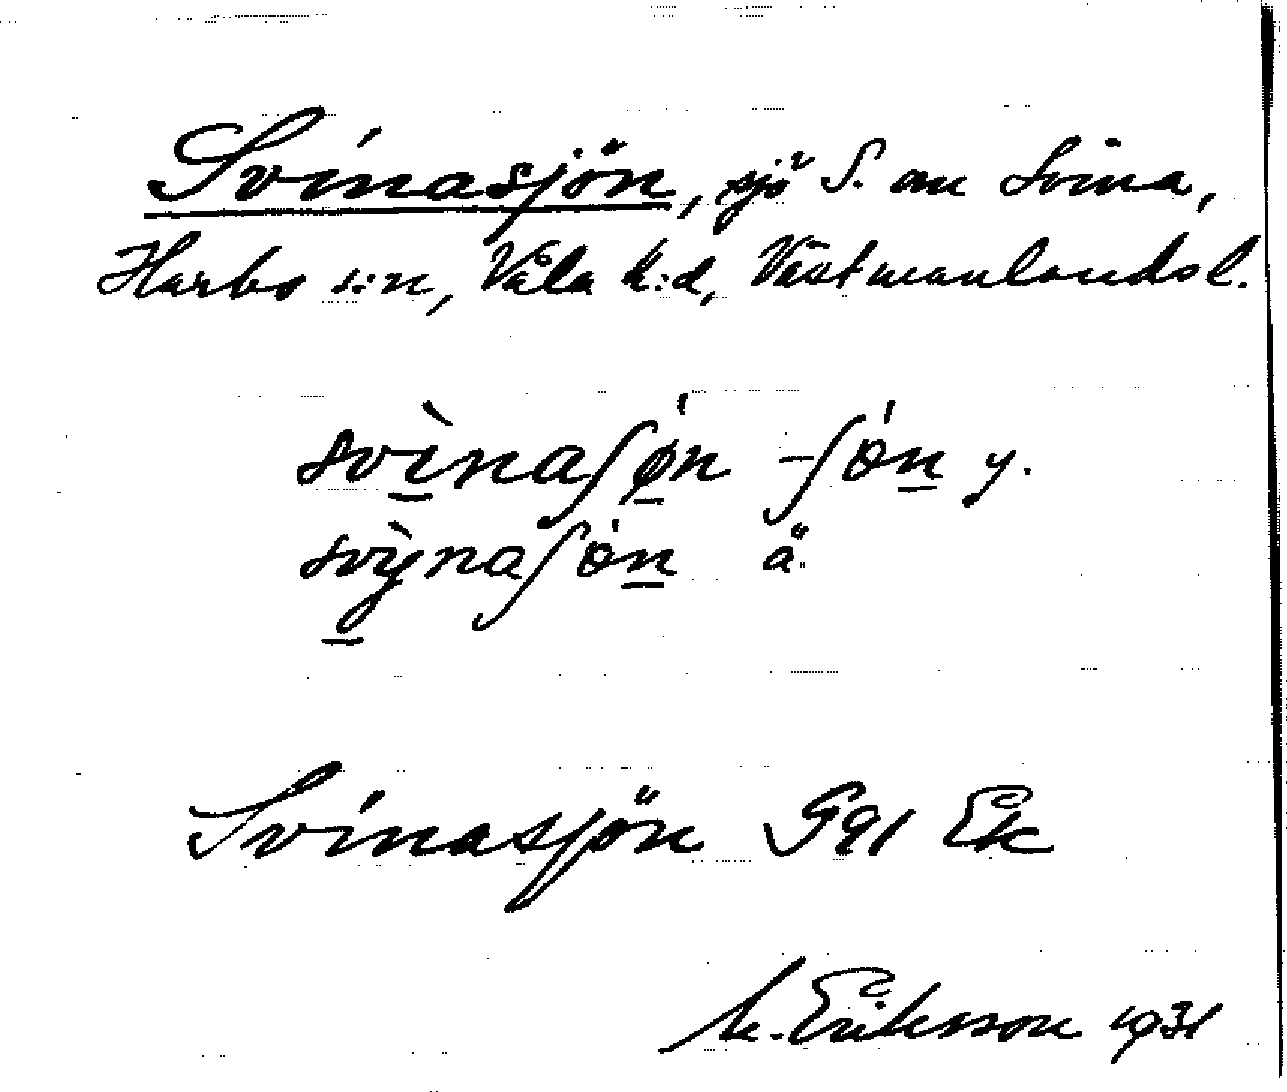 Svinasjön, sjö S. om Svina,
Harbo s:n, Våla h:d, Västmanlands l.
svìnaʃǿn -ʃön y.
svỳnaʃön ä.
Svinasjön G91 Ek
M. Eriksson 1931